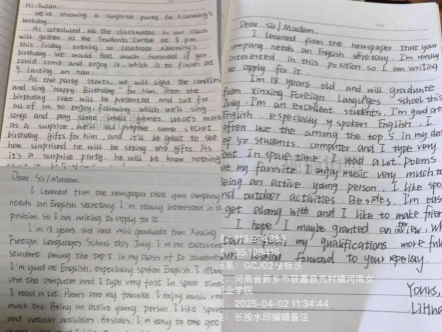 Hi Susan,
We're throwing a surprise party for Xiaoming's
birthday.
As scheduled all the classmates in our class
will gather at the Students Center at 8 pm
this Friday evening to celebrate Xiaoming's
birthday. We would feel much honored if you
could come and enjoy it, which is to finish at
9, lasting an hour.
As the party starts, we will light the candles
and sing "Happy Birthday" for him. Then the
birthday cake will be presented and cut for
all of us to enjoy, following which we'll sing
songs and play some small games. What's more
as a surprise, we'll all prepare some secret
birthday gifts for him, and it'll be great to see
how surprised he will be seeing the gifts. As
it's a surprise party, he will know nothing
Dear Sir/Madam,
I learned from the newspaper that your company
needs an English Secretary. I'm really interested in this
position so I am writing to apply for it.
I'm 18 years old and will graduate from Xinxing
Foreign Languages School this July. I'm an excellent
students. Among the top 5 in my class of 50 students.
I'm good at English, especially spoken English. I often
use the computer and I type very fast. In spare time
I read a lot. Poems are my favorite. I enjoy music very
much too. Being an active young person, I like sports
and outdoor activities. Besides, I'm easy to get
Dear Sir/Madam,
I learned from the newspaper that your
company needs an English secretary. I'm really
interested in this position so I am writing
to apply for it.
I'm 18 years old and will graduate
from Xinxing Foreign Languages School this
July. I'm an excellent students. I'm good at
English especially spoken English. I
often the among the top 5 in my class
of 50 students. computer and I type very
fast. In spare time I read a lot. Poems
are my favorite. I enjoy music very much too
Being an active young person. I like sports
and outdoor activities. Besides, I'm easy
get along with and I like to make friends
I hope I maybe granted an interview. Wh
can my qualifications more fully
am looking forward to your reply.
Yours,
LiHua
坐标系: GCJ02坐标系
河南省新乡市获嘉县亢村镇河南女
2025-04-02 11:34:44
备注: 长按水印编辑备注